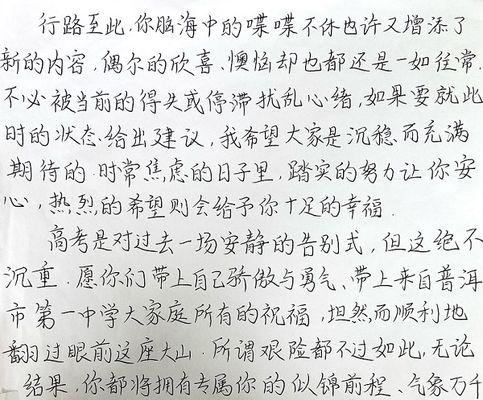 行路至此,你脑海中的喋喋不休也许又增添了
新的内容,偶尔的欣喜、懊恼却也都还是一如往常.
不必被当前的得失或停滞扰乱心绪,如果要就此
时的状态给出建议,我希望大家是沉稳而充满
期待的.时常焦虑的日子里,踏实的努力让你安
心,热烈的希望则会给予你十足的幸福.
高考是对过去一场安静的告别式,但这绝不
沉重.愿你们带上自己骄傲与勇气、带上来自普洱
市第一中学大家庭所有的祝福,坦然而顺利地
翻过眼前这座大山.所谓艰险都不过如此,无论
结果,你都将拥有专属你的似锦前程、气象万千